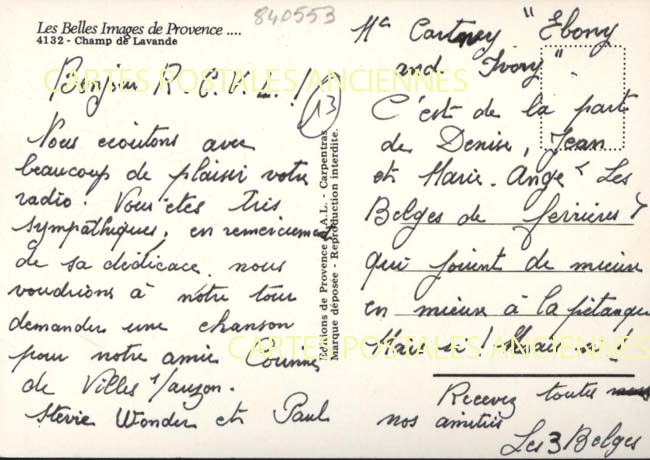 840553
Les Belles Images de Provence ....
4132 - Champ de Lavande
Bonjour R.C.V.L. !
13
Nous écoutons avec
beaucoup de plaisir votre
radio. Vous êtes très
sympathiques, en remerciement
de sa dédicace, nous
voudrions à notre tour
demander une chanson
pour notre amie
de Villes s/auzon.
Stevie Wonder et Paul
Editions de Provence - Carpentras
Marque déposée - Reproduction interdite.
Mc Cartney "Ebony
and Ivory".
C'est de la part
de Denise, Jean
et Marie-Ange "Les
Belges de ferrières"
qui jouent de mieux
en mieux à la pétanque
Recevez toutes
nos amitiés
Les 3 Belges
CARTES POSTALES ANCIENNES
CARTES POSTALES ANCIENNES